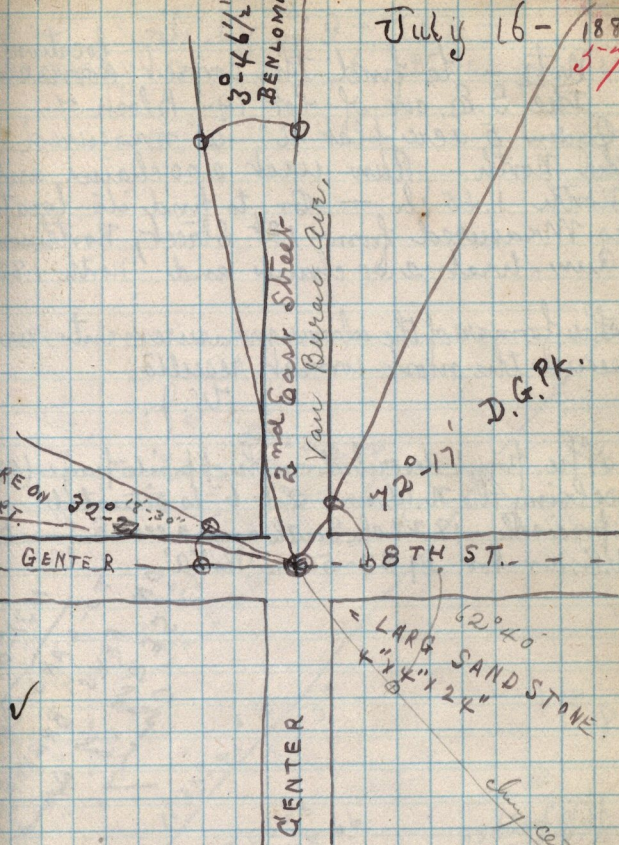 July 16- 188
57
3°-46 1/2'
BENLOM
2nd East Street
Van Buran Ave,
D.G.PK.
42°-17'
RE ON
32°-
18'-30"
ET.
CENTER
8TH ST.
62°40'
" LARG SANDSTONE
4"x4"x24"
CENTER